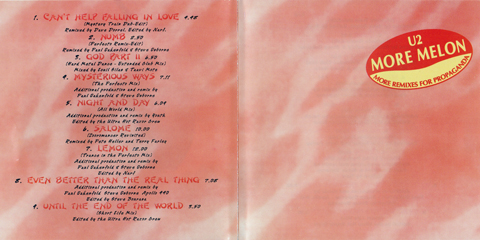 1. CAN'T HELP FALLING IN LOVE 4.48
(Mystery Train Dub-Edit)
Remixed by Dave Dorrel. Edited by Narf.
2. NUMB 8.50
(Perfecto Remix-Edit)
Remixed by Paul Oakenfold & Steve Osborne
3. GOD PART II 6.50
(Hard Metal Dance - Extended Disk Mix)
Mixed by
4. MYSTERIOUS WAYS 7.11
(The Perfecto Mix)
Additional production and remix by
Paul Oakenfold & Steve Osborne
5. NIGHT AND DAY 6.59
(All World Mix)
Additional production and remix by Youth
Edited by the Ultra Hot Razor Crew
6. SALOME 10.00
(Zooromancer Revisited)
Remixed by Pete Heller and Terry Farley
7. LEMON 10.00
(Trance in the Perfecto Mix)
Additional production and remix by
Paul Oakenfold & Steve Osborne
Edited by Narf
8. EVEN BETTER THAN THE REAL THING
Additional production and remix by
Paul Oakenfold Steve Osborne Apollo 440
Edited by Steve
9. UNTIL THE END OF THE WORLD 5.50
Edited by the Ultra Hot Razor Crew
U2
MORE MELON
MORE REMIXES FOR PROPAGANDA